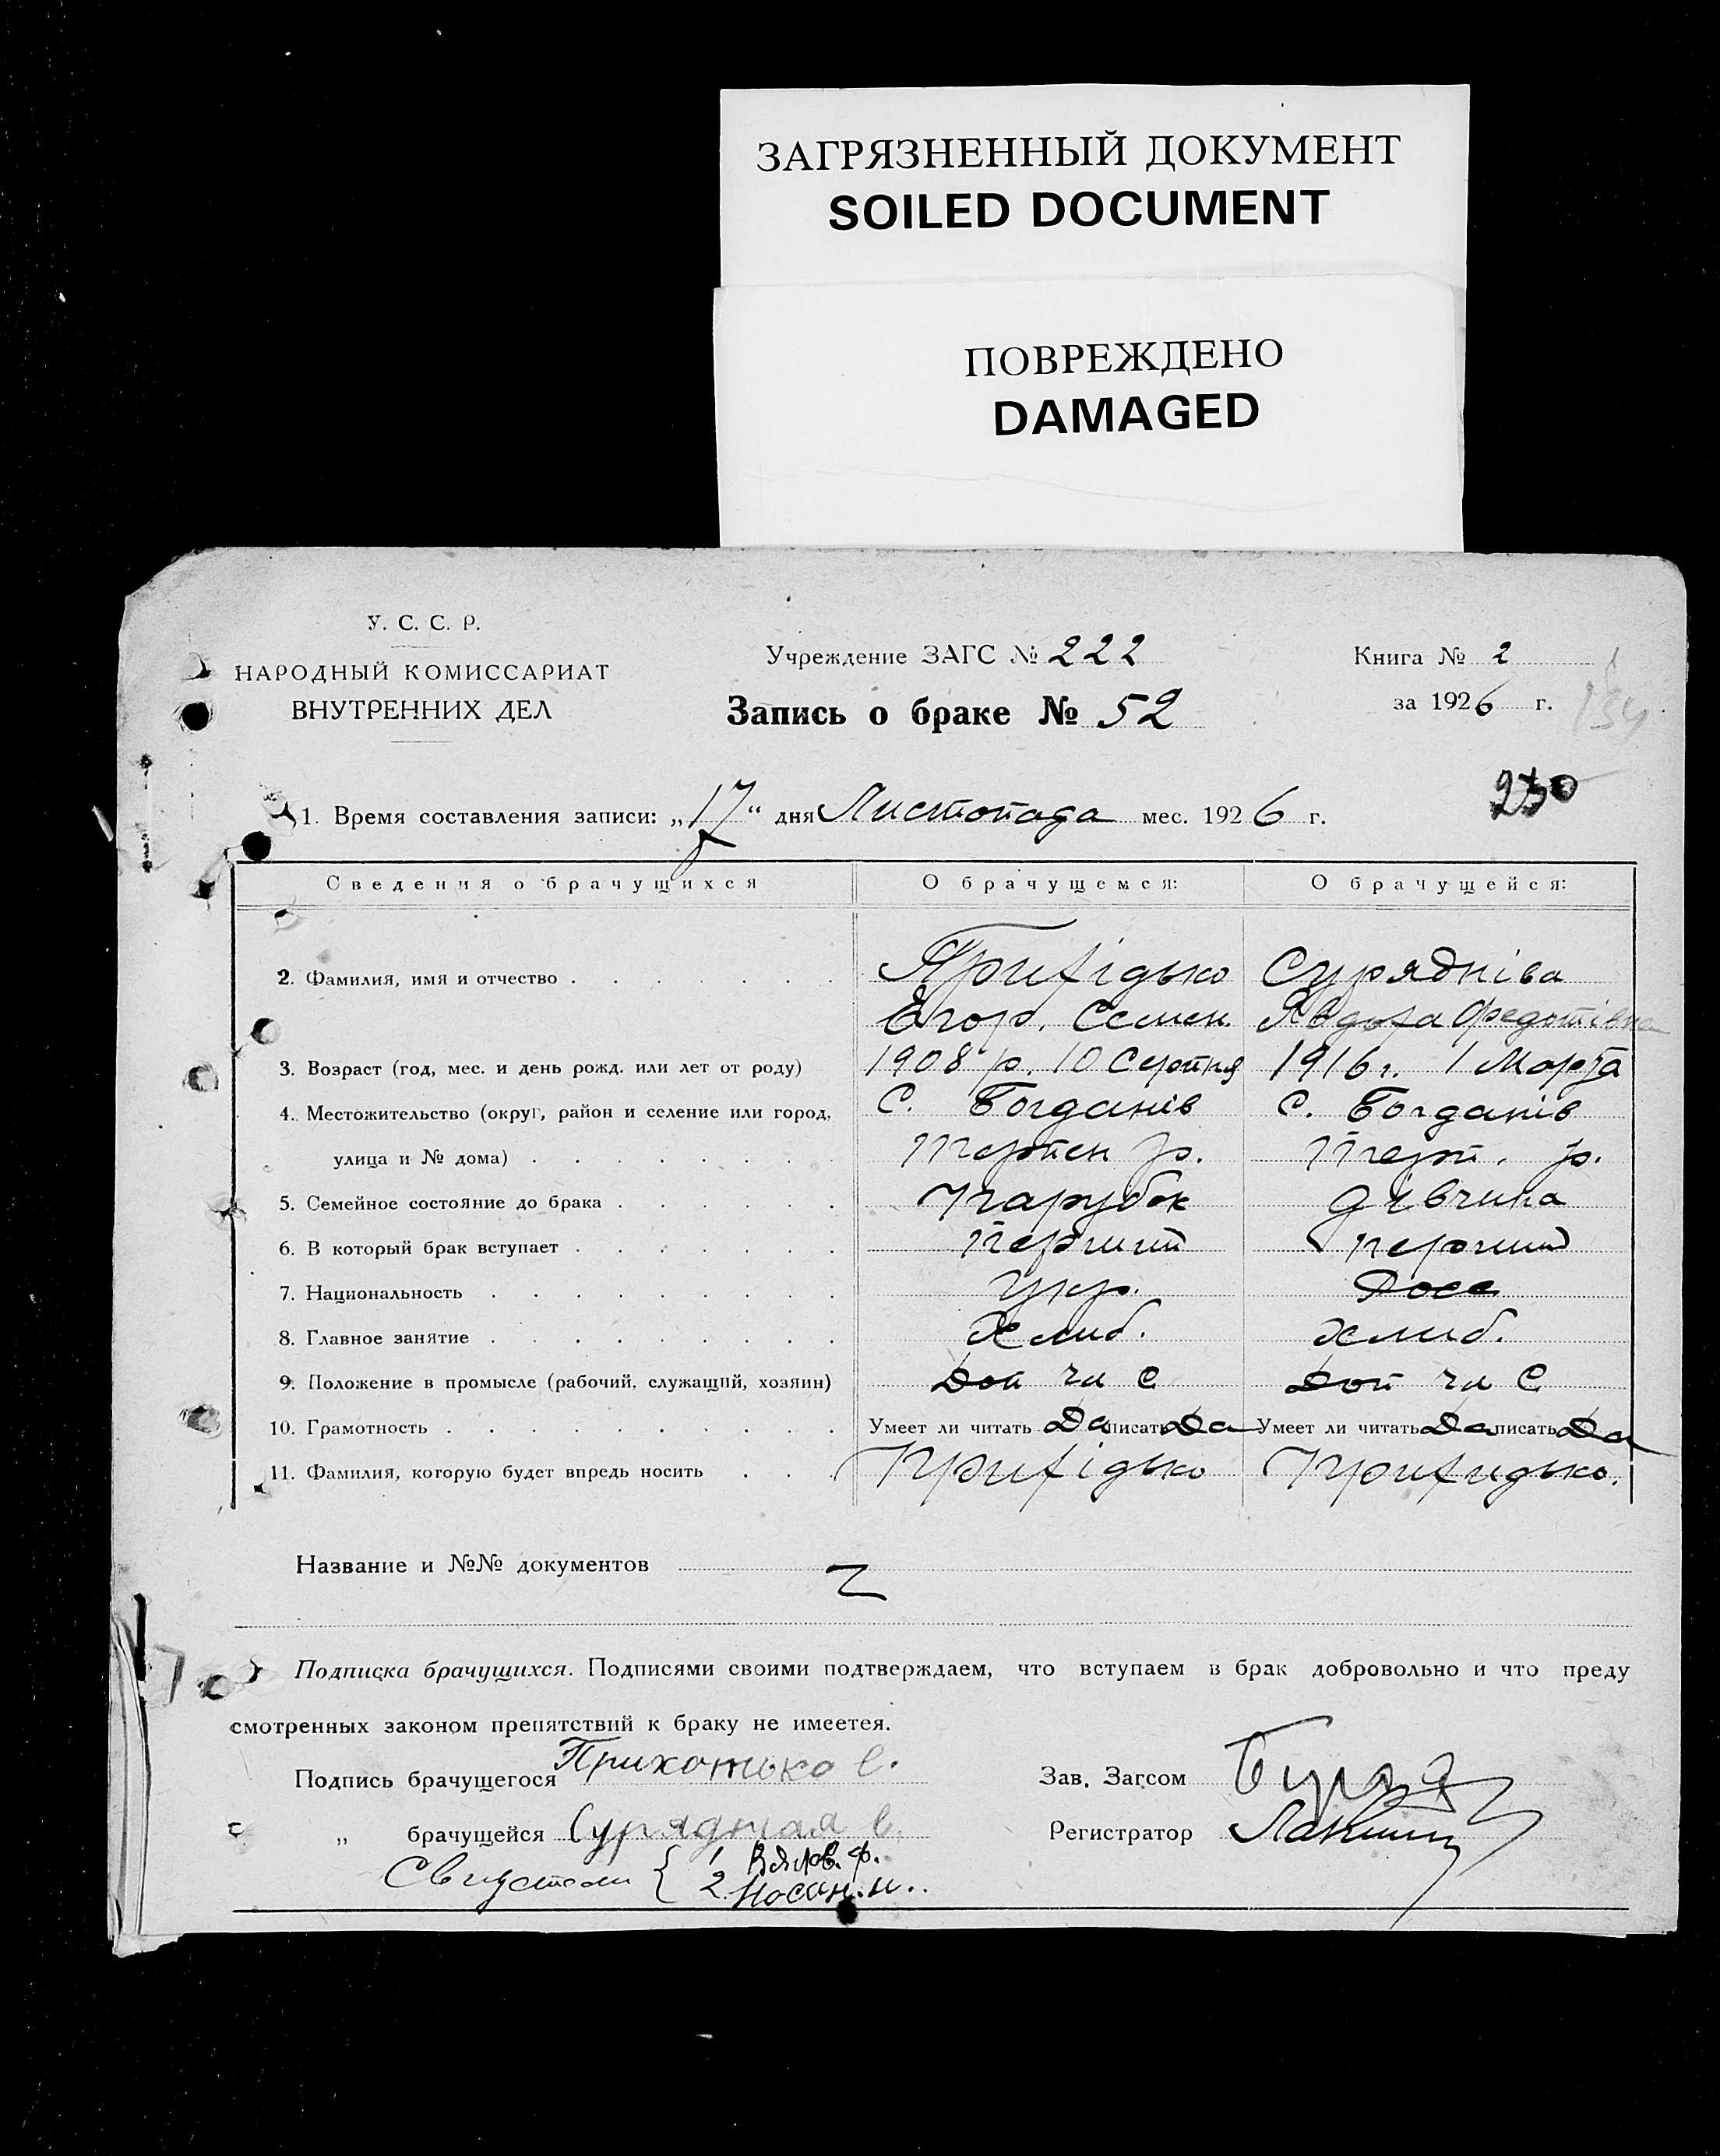 ЗАГРЯЗНЕННЫЙ ДОКУМЕНТ
SOILED DOCUMENT
ПОВРЕЖДЕНО
DAMAGED
У. С. С. Р.
НАРОДНЫЙ КОМИССАРИАТ
ВНУТРЕННИХ ДЕЛ
Учреждение ЗАГС № 222
Запись о браке № 52
Книга № 2
за 1926 г.
230
1. Время составления записи: „17“ дня Листопада мес. 1926 г.
Сведения о брачущихся О брачущемся: О брачущейся:
2. Фамилия, имя и отчество Суряднiва
Егор. Семен. Федотiвна
3. Возраст (год, мес. и день рожд. или лет от роду) 1908 р. 10 Серпня 1916 г. 1 Марта
4. Местожительство (округ, район и селение или город, С. Богданiв С. Богданiв
улица и № дома) р. р.
5. Семейное состояние до брака Парубок дiвчина
6. В который брак вступает Перший перший
7. Национальность Укр. Росс
8. Главное занятие Хлиб. хлиб.
9. Положение в промысле (рабочий, служащий, хозяин) Доп чл С Доп чл С
10. Грамотность Умеет ли читать Да писать Да Умеет ли читать Да писать Да
11. Фамилия, которую будет впредь носить
Название и №№ документов
Подписка брачущихся. Подписями своими подтверждаем, что вступаем в брак добровольно и что преду
смотренных законом препятствий к браку не имеется.
Подпись брачущегося Прихотько Е. Зав. Загсом
„ брачущейся Сурядная Е. Регистратор
Свидетели { 1
2. Носан. и.